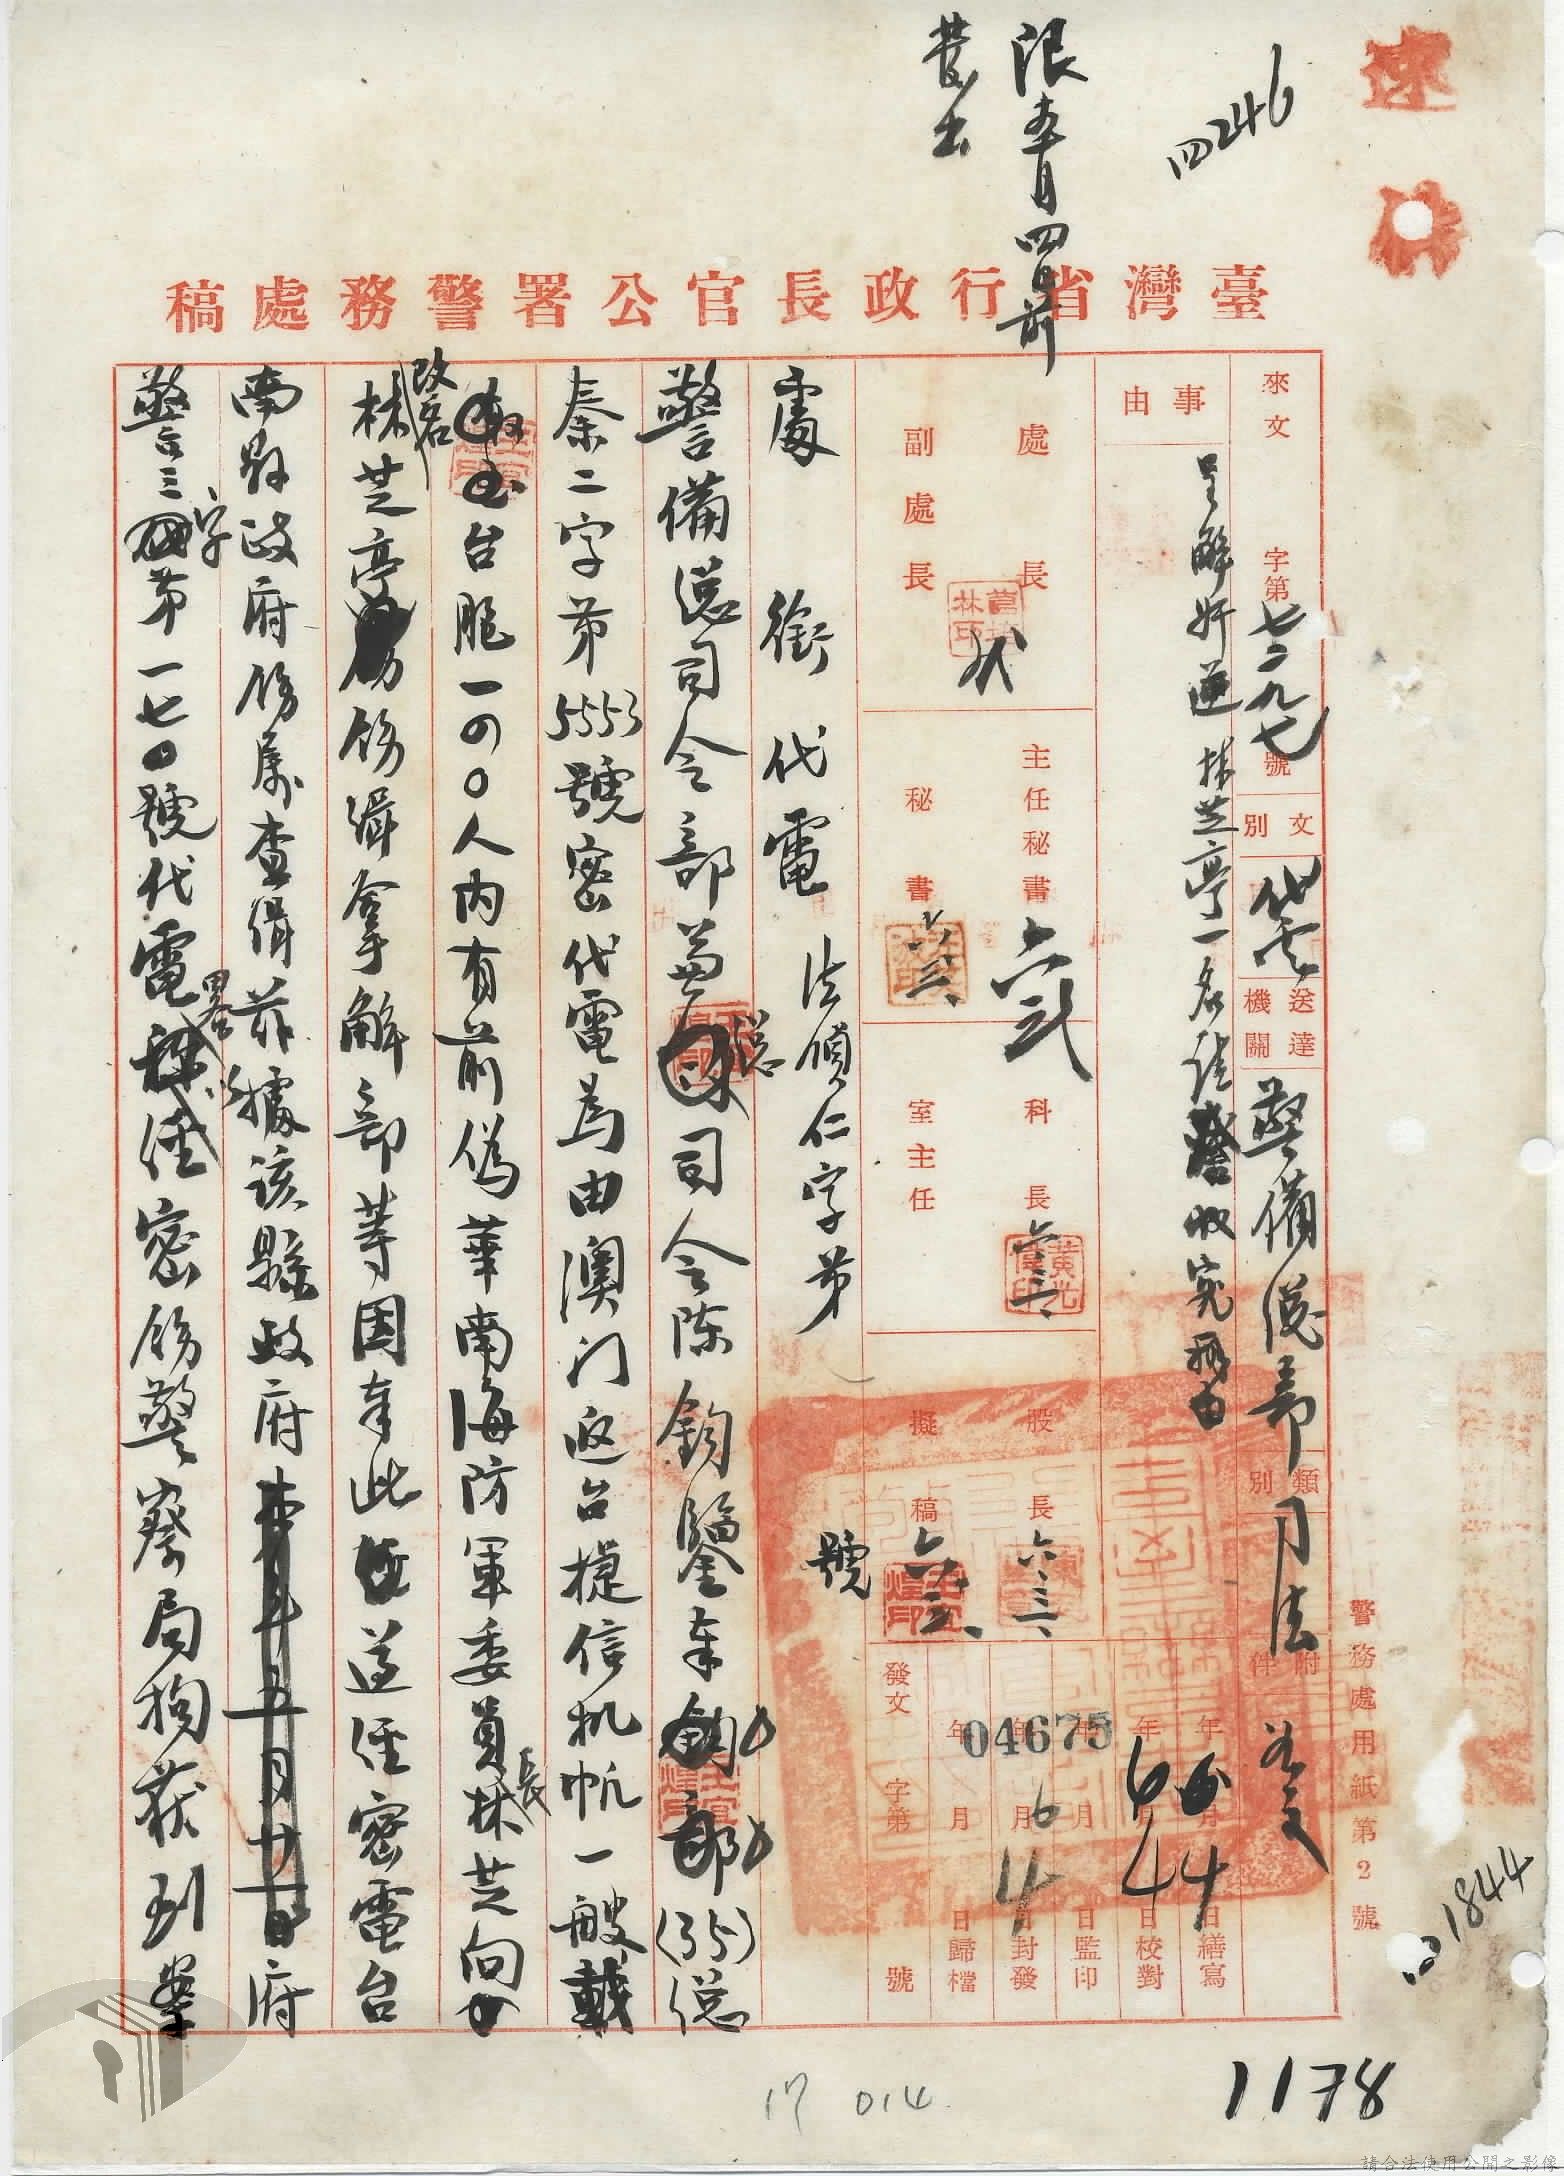 速件
四246
限本月四日前
發出
臺灣省行政長官公署警務處稿
來文 字第七二九七號
文別 代電
送達機關 警備總部
類別 司法
附件 若文
事由
呈解奸逆林芝亭一名請詧收究辦由
處長
副處長
代
主任秘書
秘書
六三
科長
室主任
股長 六、三、
擬稿 六、三、
年 月 日繕寫
年 月 日校對
年 月 日監印
年 月 日封發
年 月 日歸檔
發文 字第 號
6 4
6 4
6 4
04675
處銜代電 法偵仁字第 號
警備總司令部兼總司令陳鈞鑒奉(35)總
秦二字第5553號密代電為由澳门返台捷信机帆一艘載
台胞一四〇人内有前偽華南海防軍委員長林芝向
改名林芝亭飭緝拿解部等因奉此遵經密電台
南县政府飭屬查緝茲據該縣政府府
警三字第一七〇號代電畧以經密飭警察局拘获到案
警務處用紙第2號
1844
1178
17 014
請合法使用公開之影像